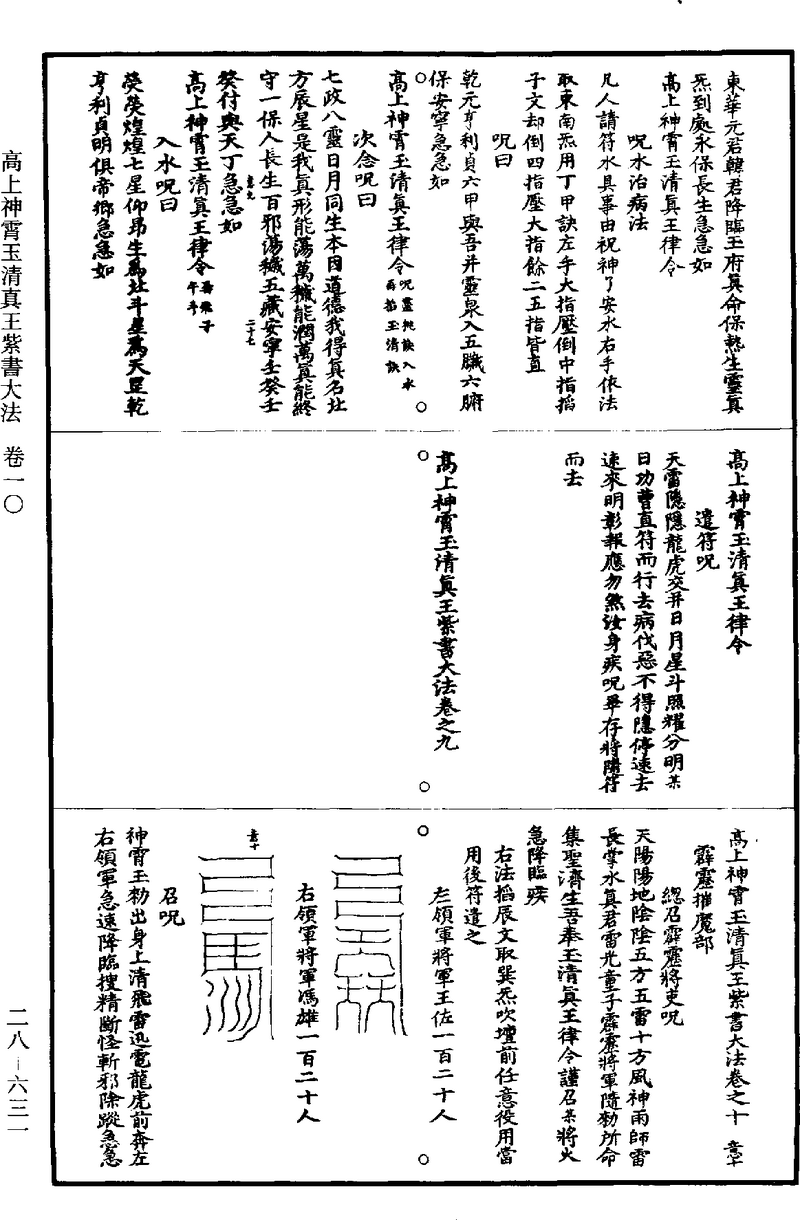 東華元君韓君降臨玉府真命保愁生靈真
炁到處永保長生急急如
高上神霄玉清真王律令
呪水治病法
凡人請符水具事由祝神了安水右手依法
取東南炁用丁甲訣左手大指壓倒中指掐
子文却倒四指壓大指餘二五指皆直
呪曰
乾元亨利貞六甲與吾并靈泉入五臟六腑
保安寧急急如
高上神霄玉清真王律令呪靈桃訣入水再掐玉清訣
次念呪曰
七政八靈日月同生本因道德我得真名北
方辰星是我真形能蕩萬穢能潤萬真能終
守一保人長生百邪蕩穢五藏安寧壬癸壬
癸付與天丁急急如
意九
二十七
高上神霄玉清真王律令再飛子午斗
入水呪曰
熒熒煌煌七星仰昂生為北斗星為天罡乾
亨利貞明俱帝鄉急急如
高上神霄玉清真王律令
遣符呪
天雷隱隱龍虎交并日月星斗照耀分明某
日功曹直符而行去病伐惡不得隱停速去
速來明彰報應勿煞汝身疾呪畢存將隨符
而去
高上神霄玉清真王紫書大法卷之九
高上神霄玉清真王紫書大法卷之十 意十
霹靂摧魔部
總召霹靂將吏呪
天陽陽地陰陰五方五雷十方風神雨師雷
長掌水真君雷光童子霹靂將軍隨勑所命
集聖濟生吾奉玉清真王律令謹召某將火
急降臨疾
右法掐辰文取巽炁吹壇前任意役用當
用後符遣之
左領軍將軍王佐一百二十人
右領軍將軍馮雄一百二十人
意十
召呪
神霄玉勑出身上清飛雷迅電龍虎前奔左
右領軍急速降臨搜精斷怪斬邪除蹤急急
高上神霄玉清真王紫書大法 卷一〇
二八-六三一